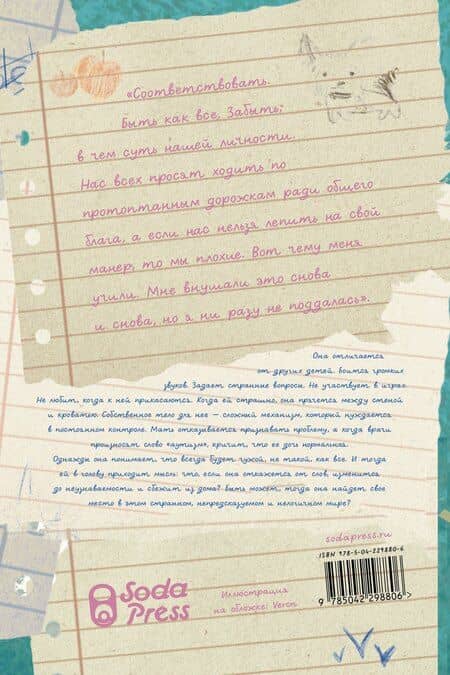 «Соответствовать.
Быть как все. Забыть,
в чем суть нашей личности.
Нас всех просят ходить по
протоптанным дорожкам ради общего
блага, а если нас нельзя лепить на свой
манер, то мы плохие. Вот чему меня
учили. Мне внушали это снова
и снова, но я ни разу не поддалась».
Она отличается
от других детей. Боится громких
звуков. Задает странные вопросы. Не участвует в играх.
Не любит, когда к ней прикасаются. Когда ей страшно, она прячется между стеной
и кроватью. Собственное тело для нее — сложный механизм, который нуждается
в постоянном контроле. Мать отказывается признавать проблему, а когда врачи
произносят слово «аутизм», кричит, что ее дочь нормальна.
Однажды она понимает, что всегда будет чужой, не такой, как все. И тогда
ей в голову приходит мысль: что, если она откажется от слов, изменится
до неузнаваемости и сбежит из дома? Быть может, тогда она найдет свое
место в этом странном, непредсказуемом и нелогичном мире?
sodapress.ru
ISBN 978-5-04-229880-6
Soda
Press
Иллюстрация
на обложке: Veron
9 785042 298806 >